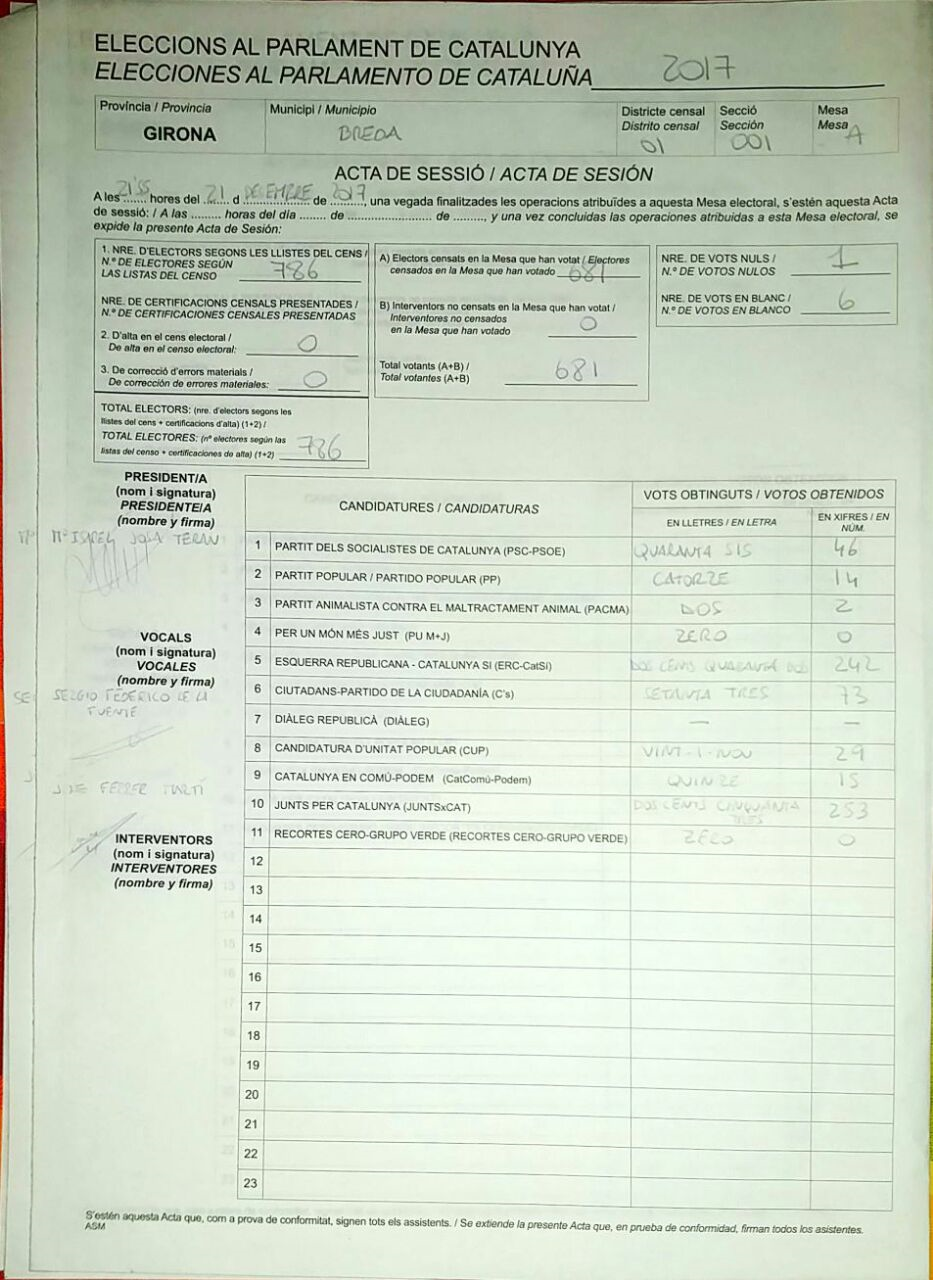 ELECCIONS AL PARLAMENT DE CATALUNYA
ELECCIONES AL PARLAMENTO DE CATALUÑA 2017
Província / Provincia
GIRONA
Municipi / Municipio
BREDA
Districte censal
Distrito censal
01
Secció
Sección
001
Mesa
Mesa A
ACTA DE SESSIÓ / ACTA DE SESIÓN
A les 21'55 hores del 21 d DECEMBRE de 2017, una vegada finalitzades les operacions atribuïdes a aquesta Mesa electoral, s'estén aquesta Acta
de sessió: / A las ......... horas del día ....... de ........................ de ........., y una vez concluidas las operaciones atribuidas a esta Mesa electoral, se
expide la presente Acta de Sesión:
1. NRE. D'ELECTORS SEGONS LES LLISTES DEL CENS /
N.º DE ELECTORES SEGÚN
LAS LISTAS DEL CENSO 786
NRE. DE CERTIFICACIONS CENSALS PRESENTADES /
N.º DE CERTIFICACIONES CENSALES PRESENTADAS
2. D'alta en el cens electoral /
De alta en el censo electoral: 0
3. De correcció d'errors materials /
De corrección de errores materiales: 0
TOTAL ELECTORS: (nre. d'electors segons les
llistes del cens + certificacions d'alta) (1+2) /
TOTAL ELECTORES: (nº electores según las
listas del censo + certificaciones de alta) (1+2) 786
A) Electors censats en la Mesa que han votat / Electores
censados en la Mesa que han votado 681
B) Interventors no censats en la Mesa que han votat /
Interventores no censados
en la Mesa que han votado 0
Total votants (A+B) /
Total votantes (A+B) 681
NRE. DE VOTS NULS /
N.º DE VOTOS NULOS 1
NRE. DE VOTS EN BLANC /
N.º DE VOTOS EN BLANCO 6
PRESIDENT/A
(nom i signatura)
PRESIDENTE/A
(nombre y firma)
Mª ISABEL JOSA TERAN
VOCALS
(nom i signatura)
VOCALES
(nombre y firma)
SERGIO FEDERICO DE LA
FUENTE
FERRER
INTERVENTORS
(nom i signatura)
INTERVENTORES
(nombre y firma)
CANDIDATURES / CANDIDATURAS
VOTS OBTINGUTS / VOTOS OBTENIDOS
EN LLETRES / EN LETRA
EN XIFRES / EN
NÚM.
1 PARTIT DELS SOCIALISTES DE CATALUNYA (PSC-PSOE) QUARANTA SIS 46
2 PARTIT POPULAR / PARTIDO POPULAR (PP) CATORZE 14
3 PARTIT ANIMALISTA CONTRA EL MALTRACTAMENT ANIMAL (PACMA) DOS 2
4 PER UN MÓN MÉS JUST (PU M+J) ZERO 0
5 ESQUERRA REPUBLICANA - CATALUNYA SI (ERC-CatSí) DOS CENTS QUARANTA DOS 242
6 CIUTADANS-PARTIDO DE LA CIUDADANÍA (C's) SETANTA TRES 73
7 DIÀLEG REPUBLICÀ (DIÀLEG) — —
8 CANDIDATURA D'UNITAT POPULAR (CUP) VINT-I-NOU 29
9 CATALUNYA EN COMÚ-PODEM (CatComú-Podem) QUINZE 15
10 JUNTS PER CATALUNYA (JUNTSxCAT) DOS CENTS CINQUANTA TRES 253
11 RECORTES CERO-GRUPO VERDE (RECORTES CERO-GRUPO VERDE) ZERO 0
12
13
14
15
16
17
18
19
20
21
22
23
S'estén aquesta Acta que, com a prova de conformitat, signen tots els assistents. / Se extiende la presente Acta que, en prueba de conformidad, firman todos los asistentes.
ASM